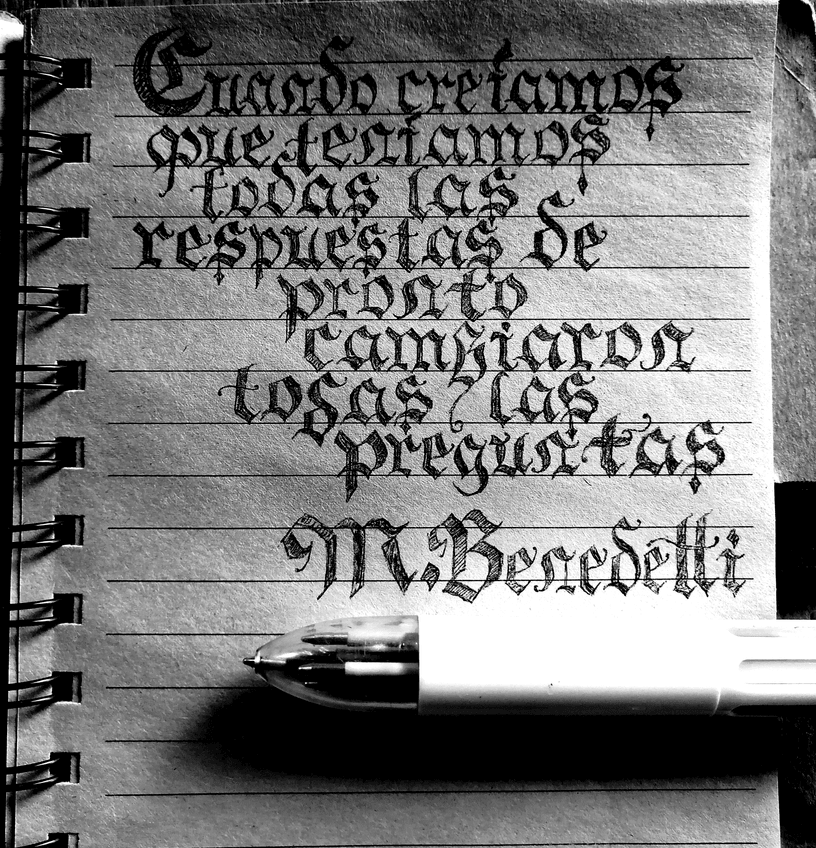 Cuando creíamos
que teníamos
todas las
respuestas de
pronto
cambiaron
todas las
preguntas
M. Benedetti